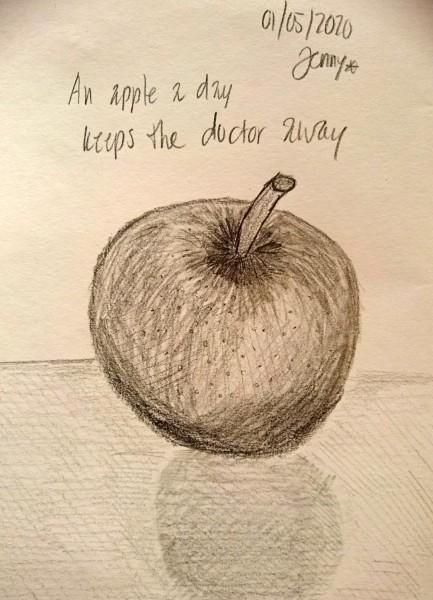 01/05/2020
Jenny
An apple a day
keeps the doctor away